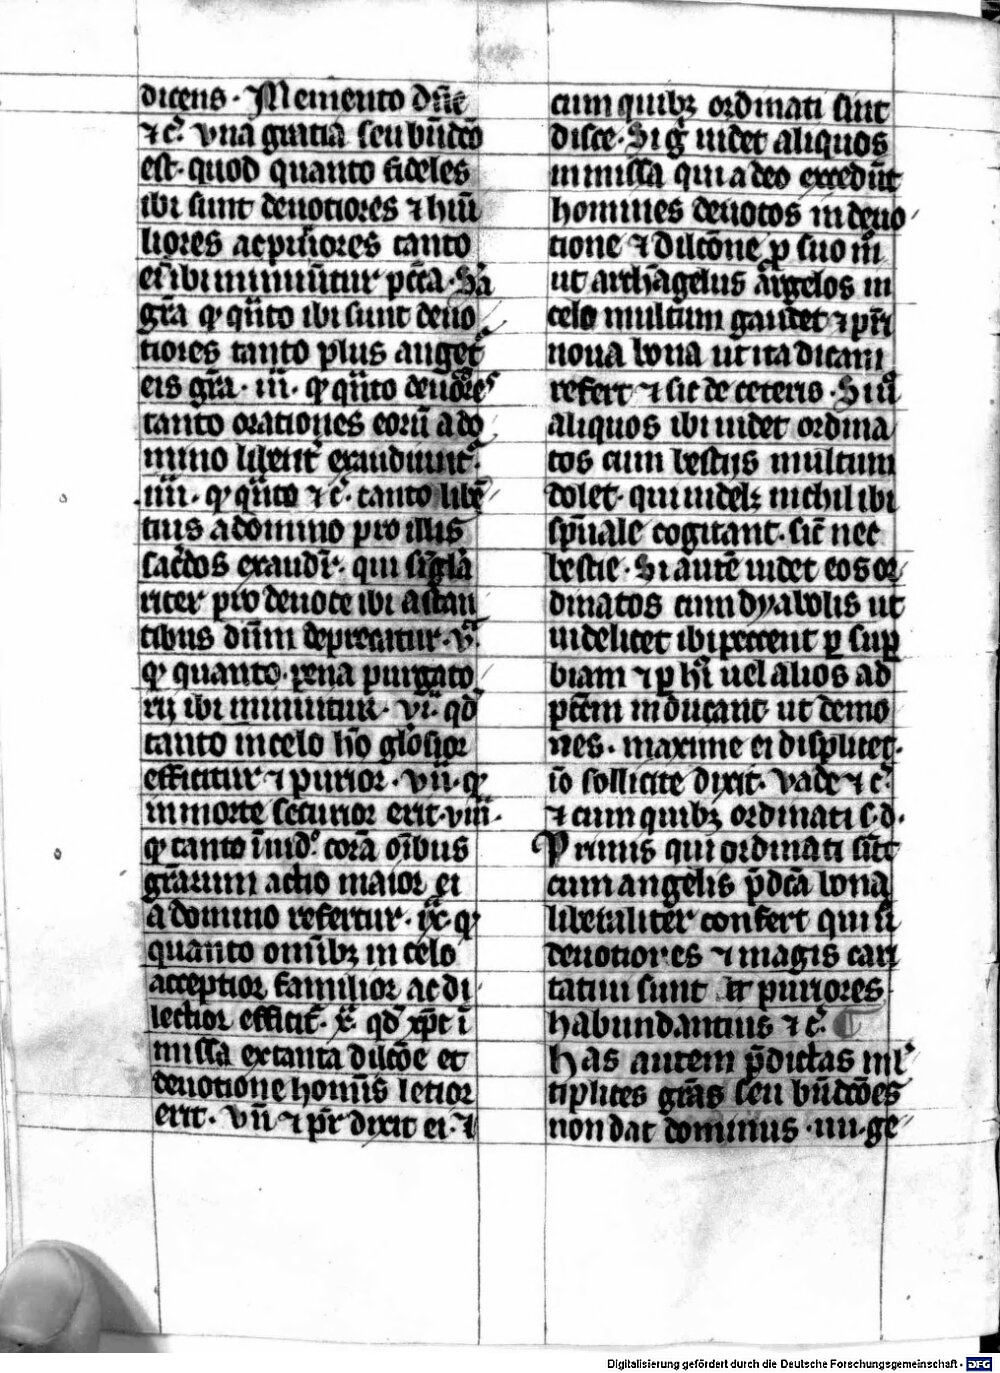 dicens. Memento dn̄e
⁊ cͣ. vna gratia seu bn̄dcō
est. quod quanto fideles
ibi sunt deuotiores ⁊ hūi
liores ac purīores tanto
ei ibi minuūtur pctā. Sā
grā qꝫ qn̄to ibi sunt deuo
tiores tanto plus auget᷑
eis grā. iii. qꝫ qn̄to deuōres
tanto orationes eorū a do
mino libent᷑ exaudiunt᷑.
.iiii. qꝫ qn̄to ⁊ cͣ. tanto libē
tius a domino pro illis
sac̄dos exaudir᷑. qui sīgla
riter pro deuote ibi astan
tibus dn̄m deprecatur. v.
qꝫ quanto. pena purgato
rij ibi minuitur. vi. qd̄
tanto in celo hō gl̓osior
efficitur ⁊ purior. vii. qꝫ
in morte securior erit. viii.
qꝫ tanto corā oībus
grārum actio maior ei
a domino refertur. ix. qꝫ
quanto omībꝫ in celo
acceptior familior ac di
lectior efficit᷑. x. qd̄ xp̄c ī
missa ex tanta dilcōe et
deuotione homīs letior
erit. vn̄ ⁊ pr̄ dixit ei. ⁊
cum quibꝫ ordinati sint
disce. Si gͦ uidet aliquos
in missa qui adeo excedūt
homines deuotos in deuo
tione ⁊ dilcōne ꝓ suo mͦ
ut archāgelus āngelos in
celo multum gaudet ⁊ pr̄i
noua bona ut ita dicam
refert ⁊ sic de ceteris. Si uͦ
aliquos ibi uidet ordina
tos cum bestijs multum
dolet. qui uidelꝫ nichil ibi
sp̄uale cogitant. sic̄ nec
bestie. Si autē uidet eos or
dinatos cum dyabolis ut
uidelicet ibi peccent ꝑ suꝑ
biam ⁊ ꝑ hͥ uel alios ad
pctm̄ inducant ut demo
nes. maxime ei displicet.
iō sollicite dixit. Vade ⁊ cͣ.
⁊ cum quibꝫ ordinati s. d.
Primis qui ordinati sūt
cum angelis p̄dcā bona
liberaliter confert qui si
deuotiores ⁊ magis cari
tatiui sunt et puriores
habundantius ⁊ cͣ.
Has autem p̄dictas ml̓
tiplices grās seu bn̄dcōes
non dat dominus .iiii. ge
Digitalisierung gefördert durch die Deutsche Forschungsgemeinschaft - DFG